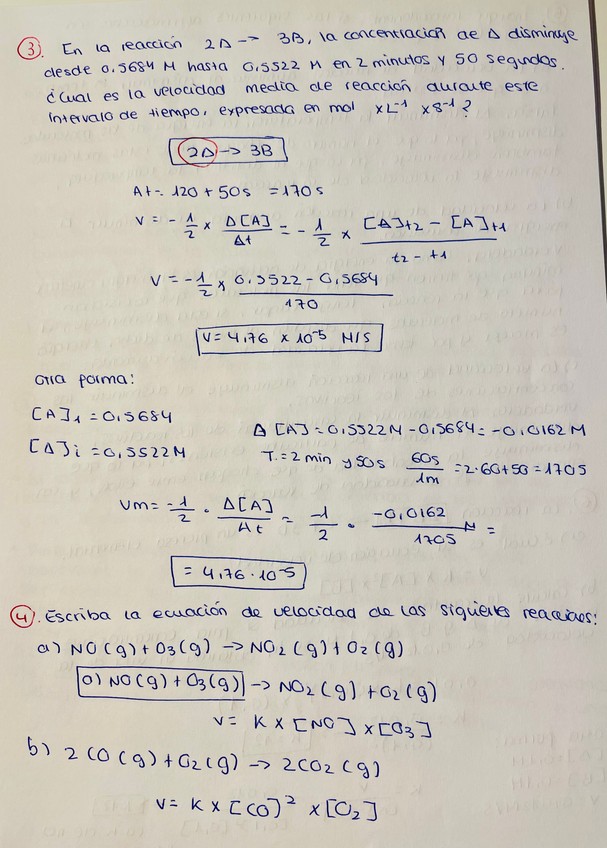 3. En la reacción 2A -> 3B, la concentración de A disminuye
desde 0,5684 M hasta 0,5522 M en 2 minutos y 50 segundos.
¿Cual es la velocidad media de reacción durante este
intervalo de tiempo, expresada en mol x L⁻¹ x s⁻¹?
2A -> 3B
Δt = 120 + 50s = 170s
V = - 1/2 x Δ[A]/Δt = - 1/2 x [A]t2 - [A]t1 / t2 - t1
V = - 1/2 x 0,5522 - 0,5684 / 170
V = 4,76 x 10⁻⁵ M/S
Otra forma:
[A]₁ = 0,5684
[A]i = 0,5522M
Δ[A] = 0,5522M - 0,5684 = -0,0162 M
T. = 2 min y 50s 60s/1m = 2·60+50 = 170s
Vm = -1/2 · Δ[A]/Δt = -1/2 · -0,0162 M/170s =
= 4,76 · 10⁻⁵
4. Escriba la ecuación de velocidad de las siguietes reacciones:
a) NO(g) + O3(g) -> NO2(g) + O2(g)
a) NO(g) + O3(g) -> NO2(g) + O2(g)
V = K x [NO] x [O3]
b) 2CO(g) + O2(g) -> 2CO2(g)
V = K x [CO]² x [O2]